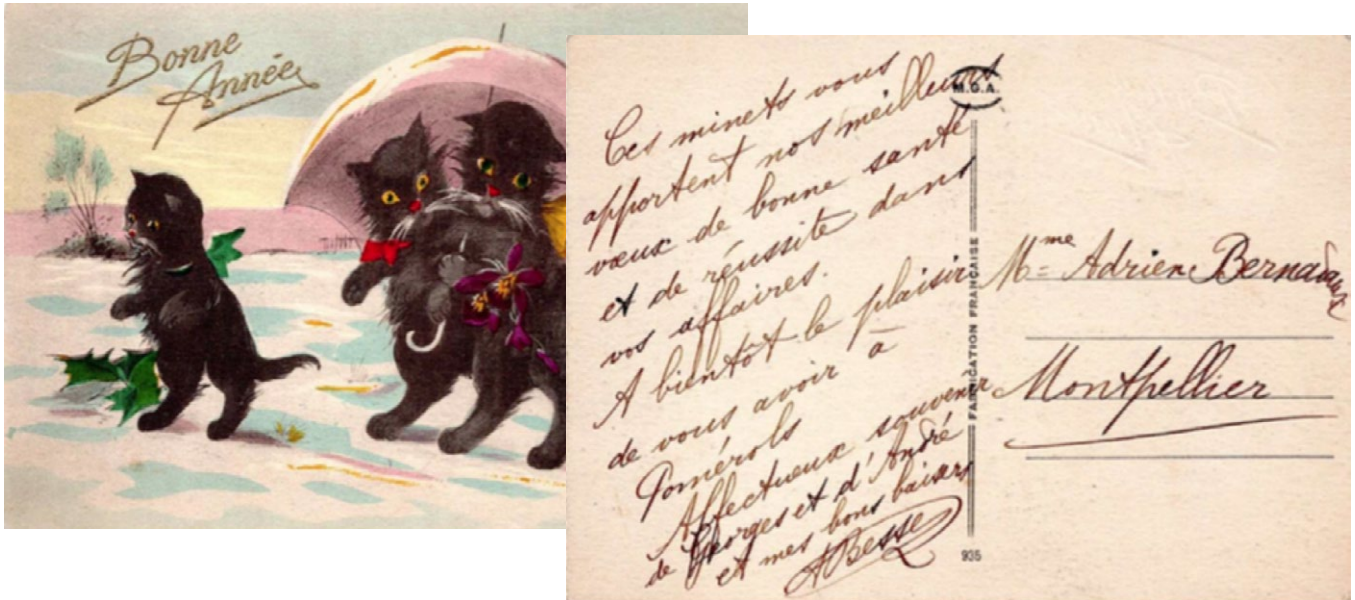 Bonne
Année
Ces minets vous
apportent nos meilleurs
vœux de bonne santé
et de réussite dans
vos affaires.
A bientôt le plaisir
de vous avoir à
Pomérols
Affectueux souvenir
de Georges et d'André
et mes bons baisers
ABesse
M.G.A.
FABRICATION FRANÇAISE
935
Mme Adrien
Montpellier